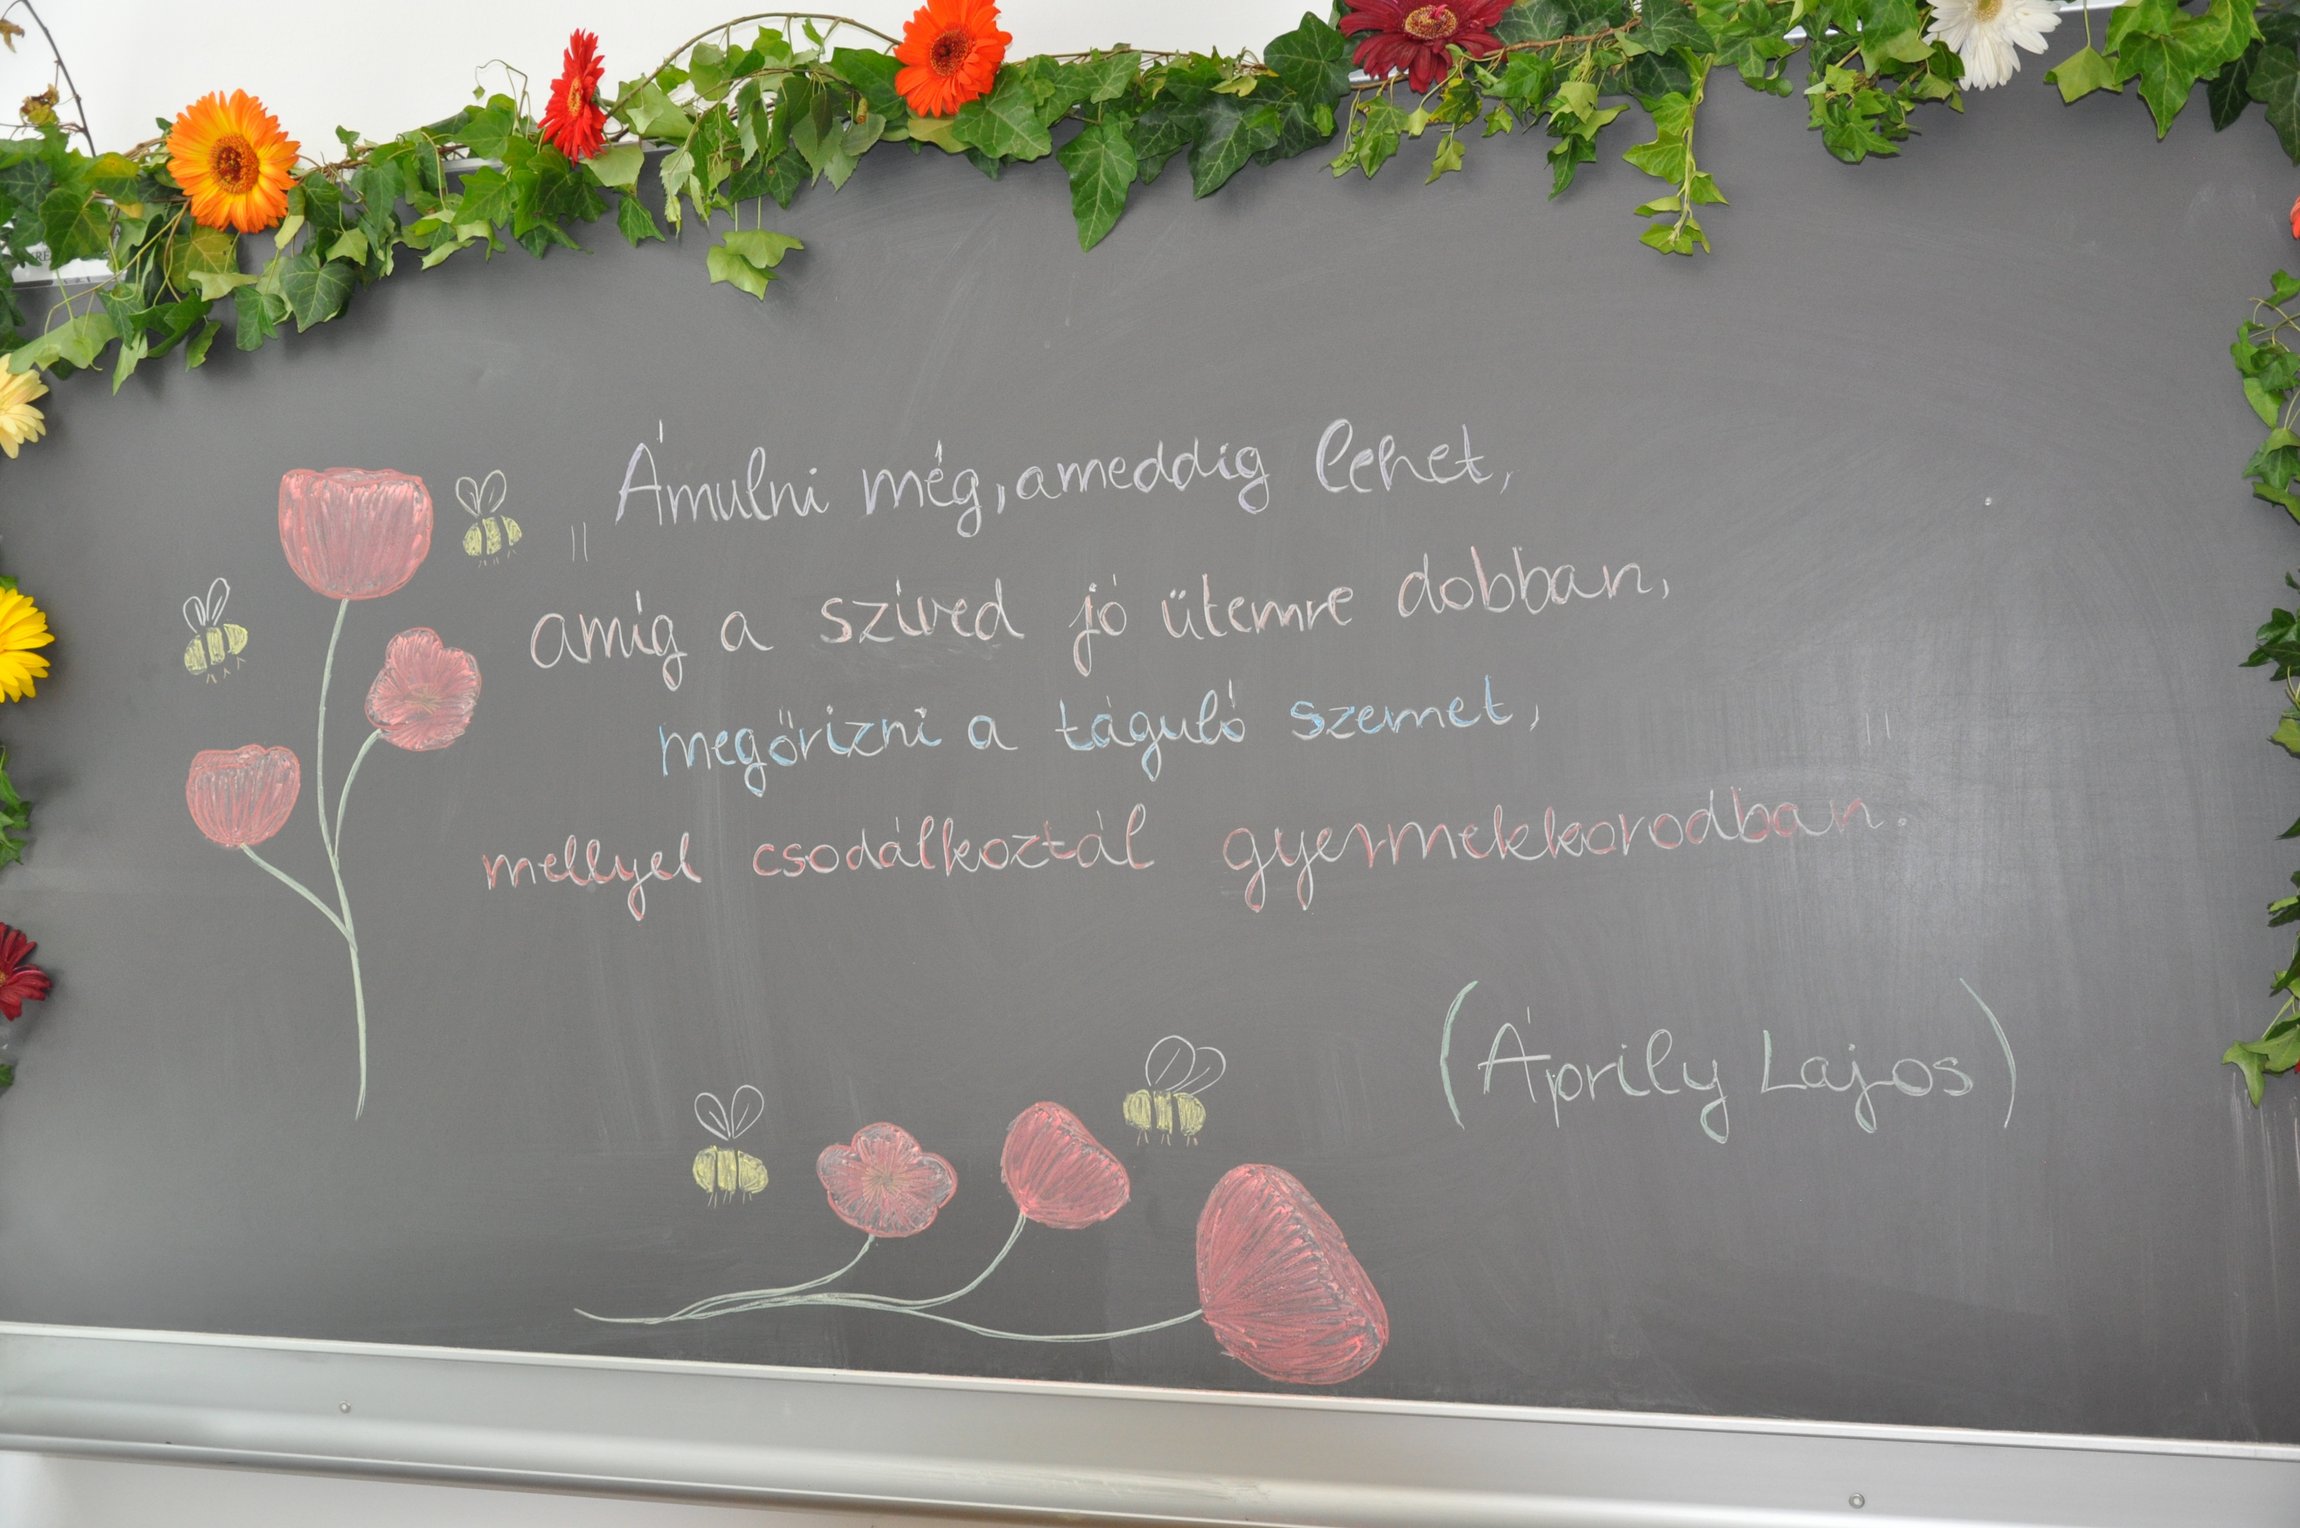 „Ámulni még, ameddig lehet,
amíg a szíved jó ütemre dobban,
megőrizni a táguló szemet,
mellyel csodálkoztál gyermekkorodban."
(Áprily Lajos)